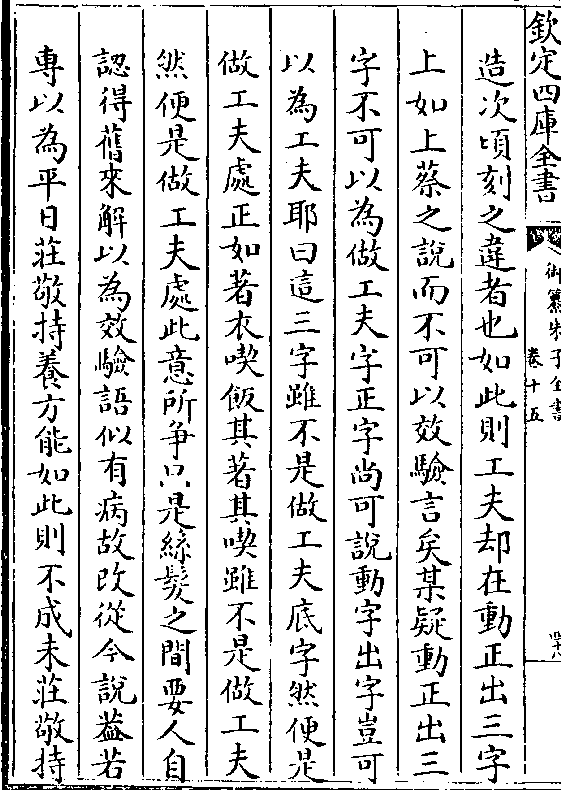 欽定四庫全書
御纂朱子全書
卷十五
四十八
造次頃刻之違者也如此則工夫却在動正出三字
上如上蔡之說而不可以效驗言矣某疑動正出三
字不可以為做工夫字正字尚可說動字出字豈可
以為工夫耶曰這三字雖不是做工夫底字然便是
做工夫處正如著衣喫飯其著其喫雖不是做工夫
然便是做工夫處此意所爭只是絲髮之間要人自
認得舊來解以為效驗語似有病故改從今說葢若
專以為平日莊敬持養方能如此則不成未莊敬持